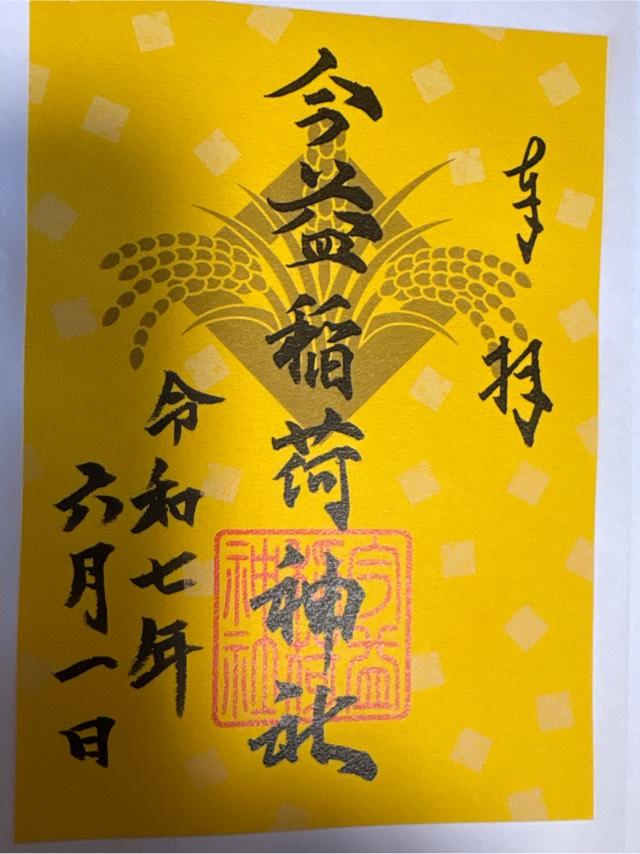 奉拝
今益稲荷神社
今益
稲荷
神社
令和七年
六月一日